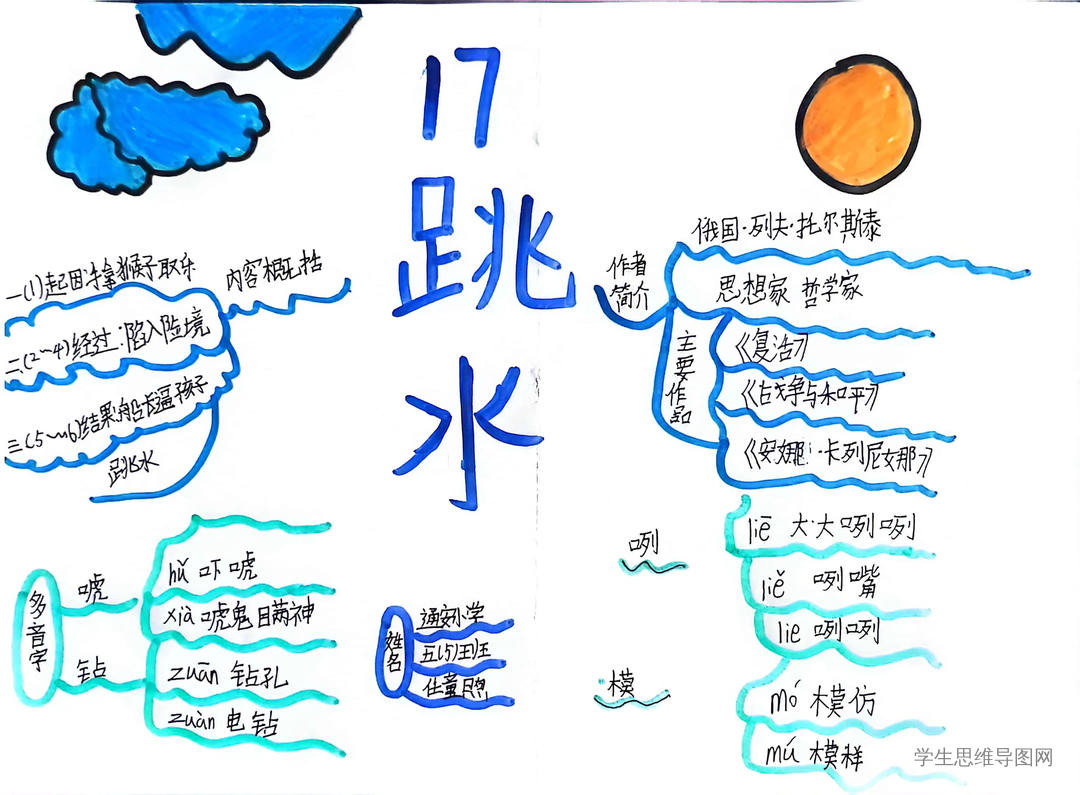 17
跳
水
内容概括
一(1)起因:拿猴子取乐
二(2~4)经过:陷入险境
三(5~6)结果:船长逼孩子
跳水
作者
简介
俄国·列夫·托尔斯泰
思想家 哲学家
主要作品
《复活》
《战争与和平》
《安娜·卡列尼娜》
多音字
唬
hǔ 吓唬
xià 唬鬼瞒神
钻
zuān 钻孔
zuàn 电钻
姓名
通安小学
五(5)王班
咧
liē 大大咧咧
liě 咧嘴
lie 咧咧
模
mó 模仿
mú 模样
学生思维导图网